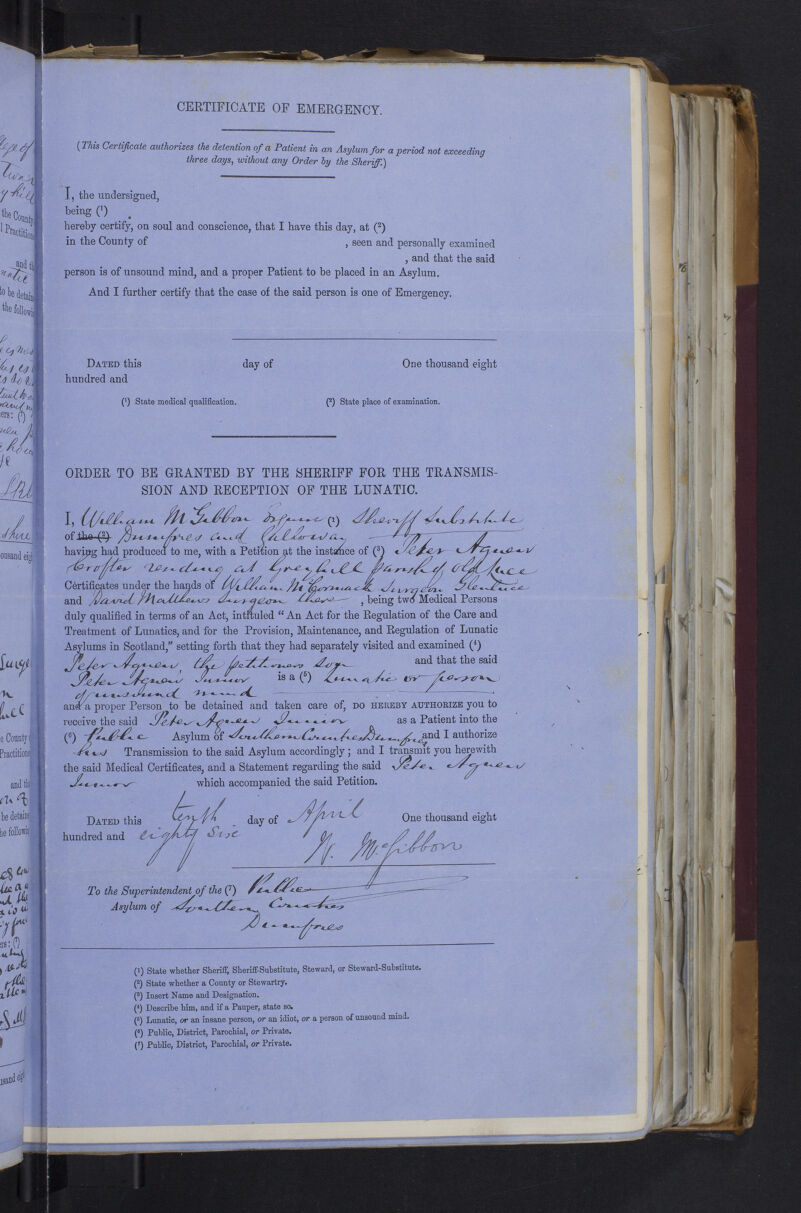 CERTIFICATE OF EMERGENCY.
(This Certificate authorizes the detention of a Patient in an Asylum for a period not exceeding
three days, without any Order by the Sheriff.)
I, the undersigned,
being (¹)
hereby certify, on soul and conscience, that I have this day, at (²)
in the County of , seen and personally examined
, and that the said
person is of unsound mind, and a proper Patient to be placed in an Asylum.
And I further certify that the case of the said person is one of Emergency.
DATED this day of One thousand eight
hundred and
(¹) State medical qualification. (²) State place of examination.
ORDER TO BE GRANTED BY THE SHERIFF FOR THE TRANSMIS-
SION AND RECEPTION OF THE LUNATIC.
I, William McGibbon Esquire (¹) Sheriff Substitute
of the (²) Dumfries and Galloway
having had produced to me, with a Petition at the instance of (³) Peter Agnew
Crofter residing at Greyhill parish of Old Luce
Certificates under the hands of William McCormack Surgeon Glenluce
and David Matthews Surgeon there , being two Medical Persons
duly qualified in terms of an Act, intituled "An Act for the Regulation of the Care and
Treatment of Lunatics, and for the Provision, Maintenance, and Regulation of Lunatic
Asylums in Scotland," setting forth that they had separately visited and examined (⁴)
Peter Agnew, the petitioners Son and that the said
Peter Agnew Junior is a (⁵) Lunatic or person
of unsound mind
and a proper Person to be detained and taken care of, DO HEREBY AUTHORIZE you to
receive the said Peter Agnew Junior as a Patient into the
(⁶) Public Asylum of Southern Counties Dumfries and I authorize
his Transmission to the said Asylum accordingly; and I transmit you herewith
the said Medical Certificates, and a Statement regarding the said Peter Agnew
Junior which accompanied the said Petition.
DATED this tenth day of April One thousand eight
hundred and eighty six
W. McGibbon
To the Superintendent of the (⁷) Public
Asylum of Southern Counties
Dumfries
(¹) State whether Sheriff, Sheriff-Substitute, Steward, or Steward-Substitute.
(²) State whether a County or Stewartry.
(³) Insert Name and Designation.
(⁴) Describe him, and if a Pauper, state so.
(⁵) Lunatic, or an insane person, or an idiot, or a person of unsound mind.
(⁶) Public, District, Parochial, or Private.
(⁷) Public, District, Parochial, or Private.